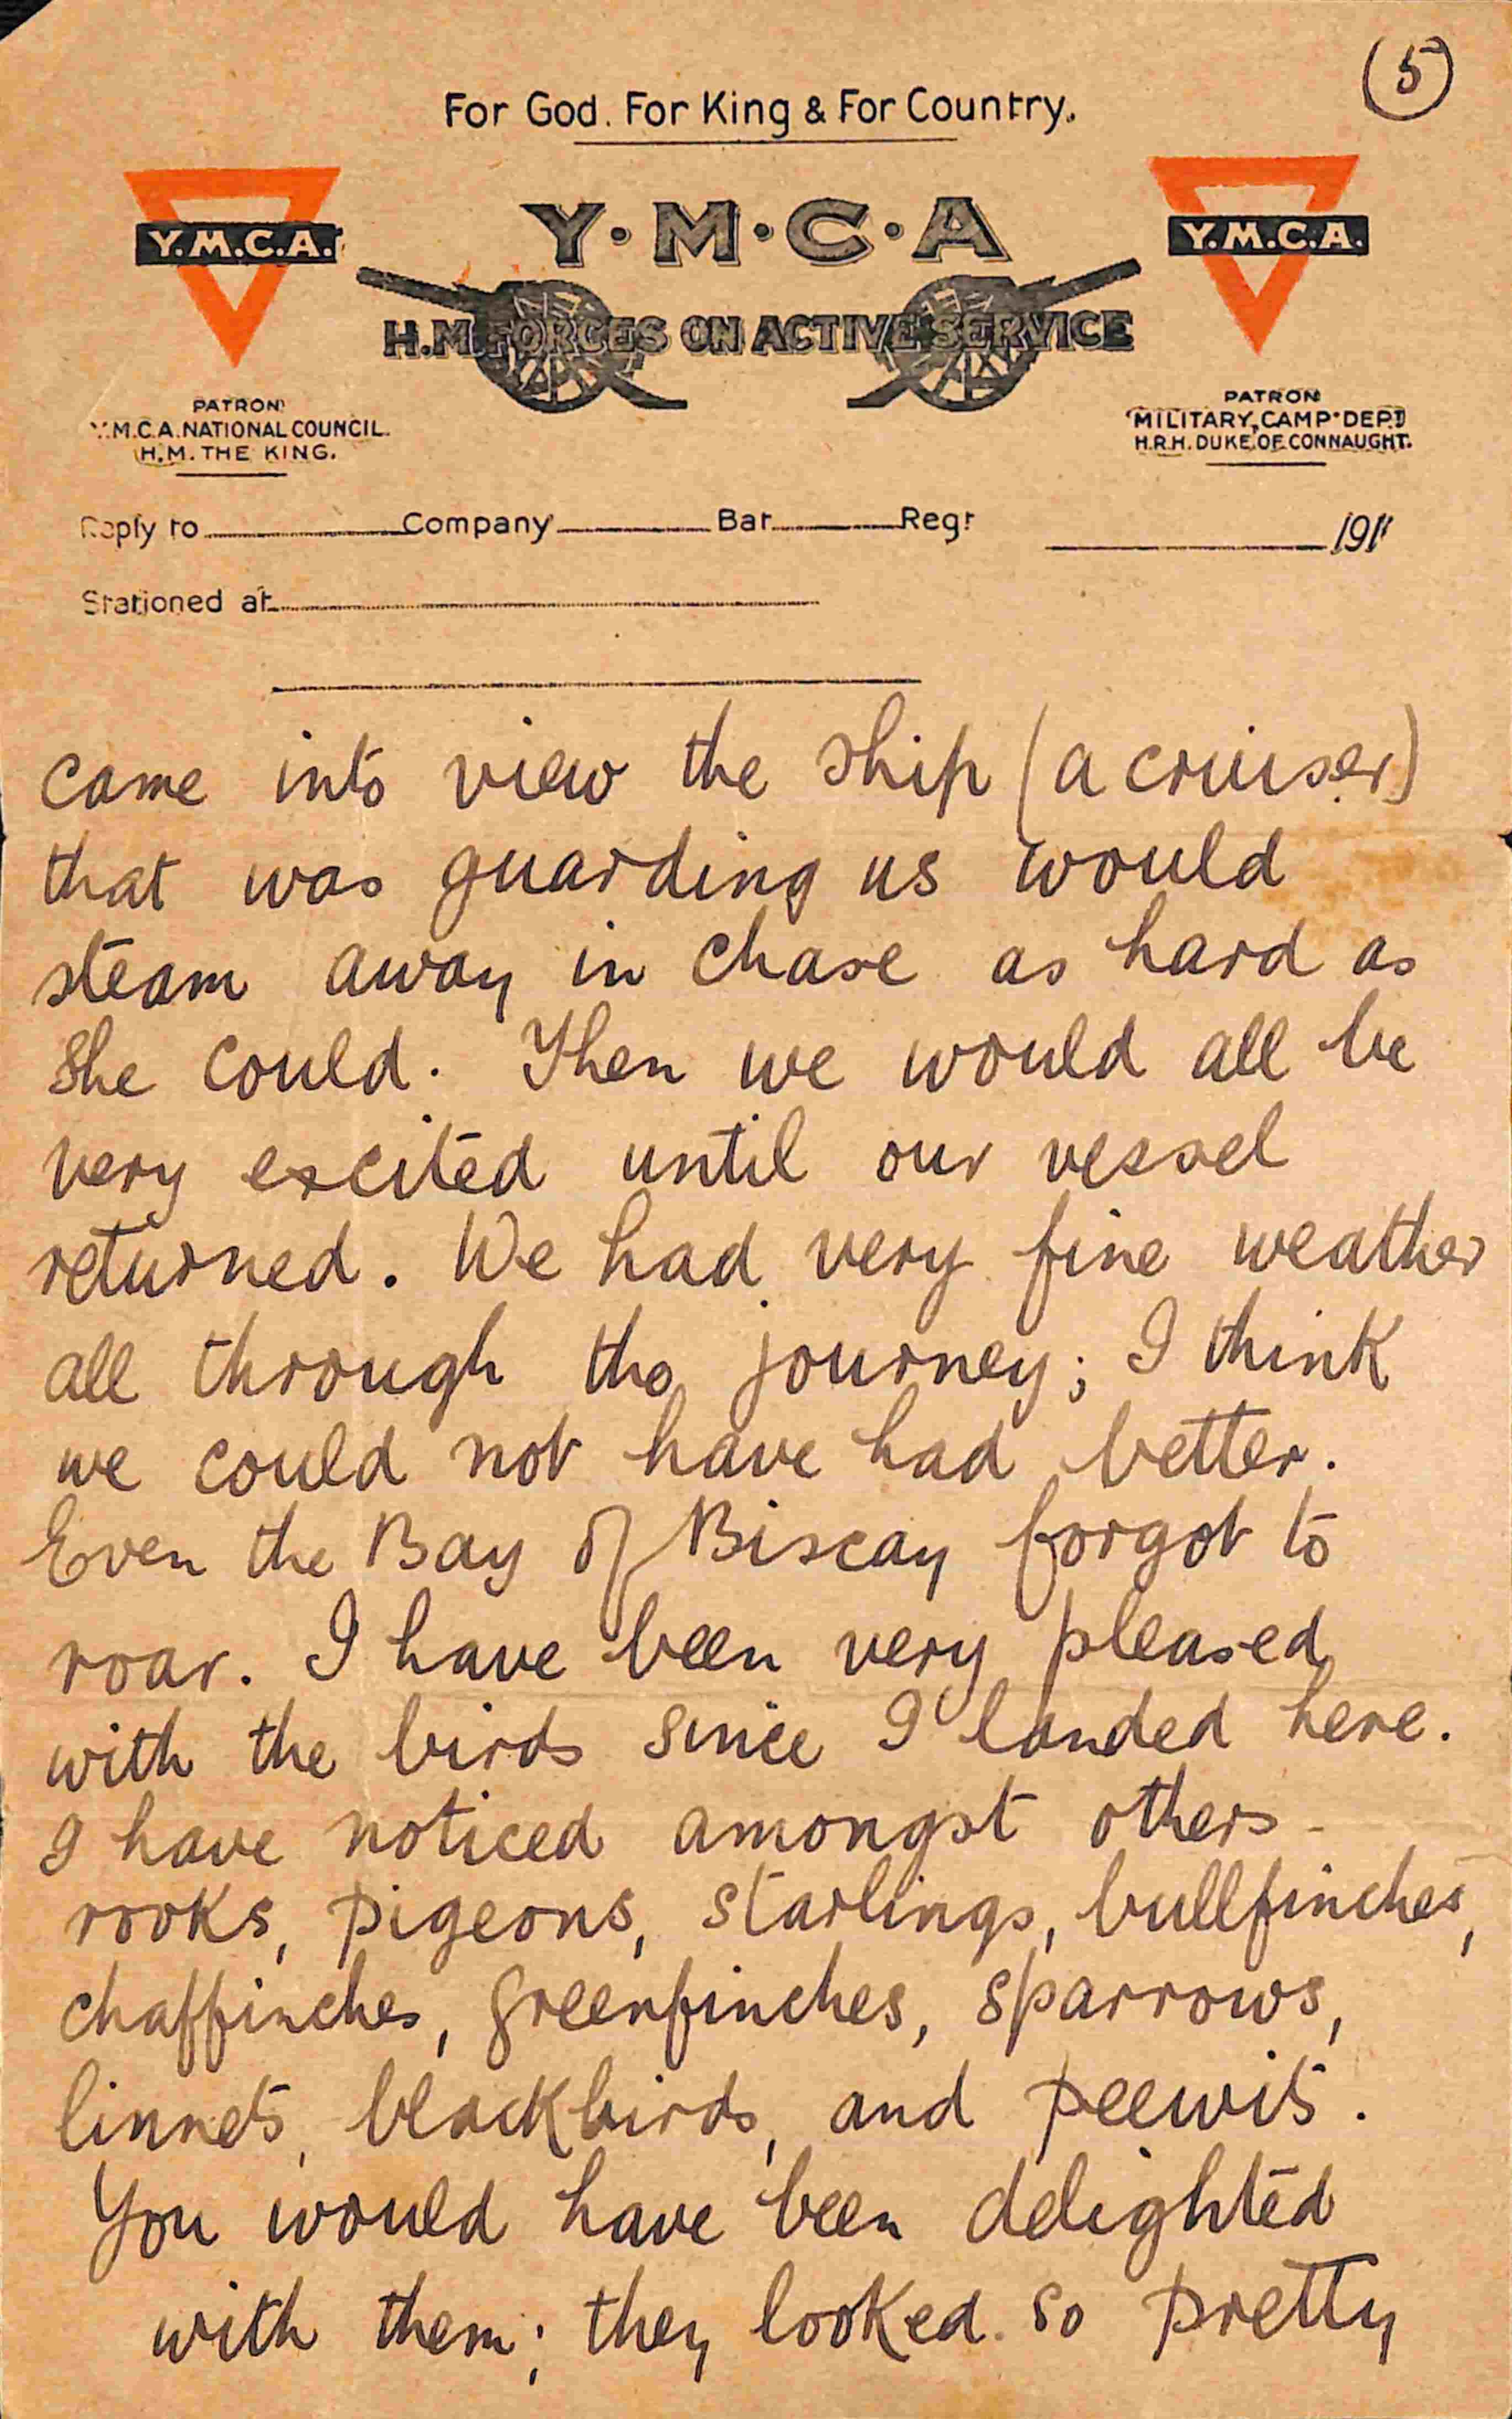 (5)
For God. For King & For Country.
Y.M.C.A.
Y·M·C·A
Y.M.C.A.
H.M. FORCES ON ACTIVE SERVICE
PATRON
Y.M.C.A. NATIONAL COUNCIL.
H.M. THE KING.
PATRON
MILITARY CAMP DEPT
H.R.H. DUKE OF CONNAUGHT.
Reply to Company Bat. Regt 191
Stationed at
came into view the ship (a cruiser)
that was guarding us would
steam away in chase as hard as
she could. Then we would all be
very excited until our vessel
returned. We had very fine weather
all through the journey; I think
we could not have had better.
Even the Bay of Biscay forgot to
roar. I have been very pleased
with the birds since I landed here.
I have noticed amongst others -
rooks, pigeons, starlings, bullfinches,
chaffinches, greenfinches, sparrows,
linnets, blackbirds, and peewits.
You would have been delighted
with them; they looked so pretty